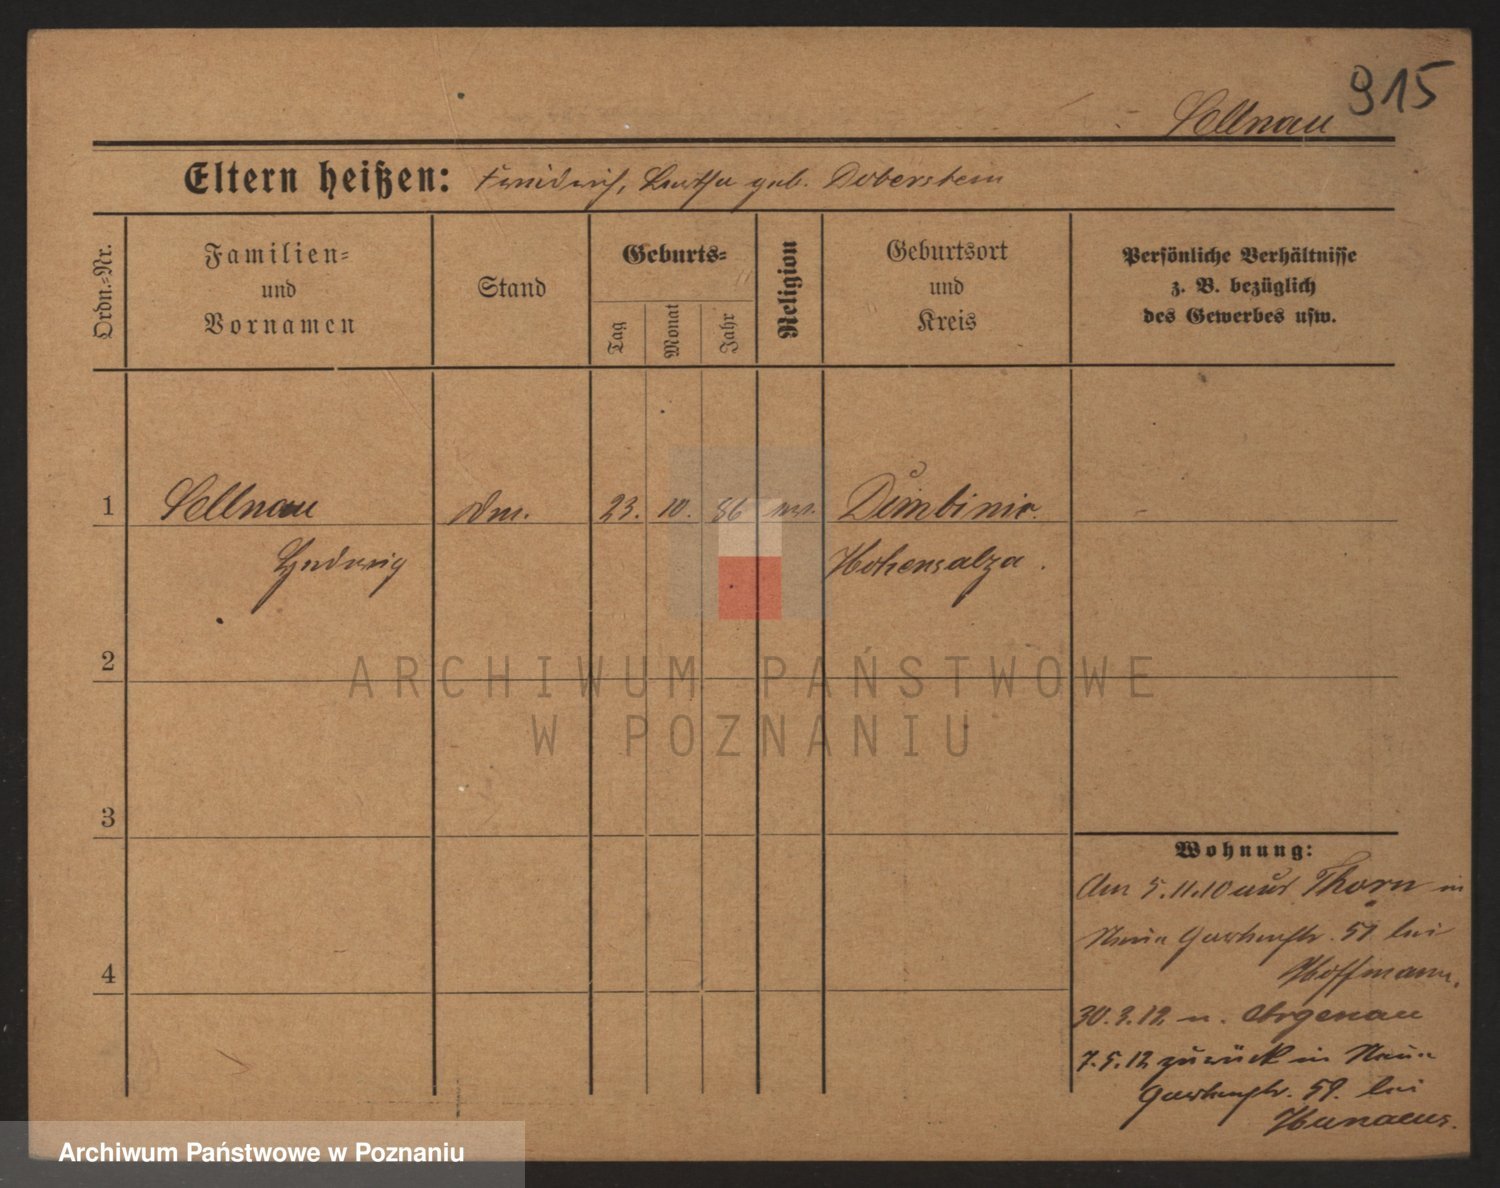 915
Sellnau
Eltern heißen: Friedrich, Bertha geb. Doberstein
Ordn.=Nr.
Familien=
und
Vornamen
Stand
Geburts=
Tag
Monat
Jahr
Religion
Geburtsort
und
Kreis
Persönliche Verhältnisse
z. B. bezüglich
des Gewerbes usw.
1
Sellnau
23. 10. 86
Hohensalza.
2
ARCHIWUM PAŃSTWOWE
W POZNANIU
3
4
Wohnung:
Am 5.11.10 aus Thorn in
Neue Gartenstr. 59 bei
Hoffmann.
30.3.12 n. Argenau
7.5.12 zurück in Neue
Gartenstr. 59. bei
Archiwum Państwowe w Poznaniu